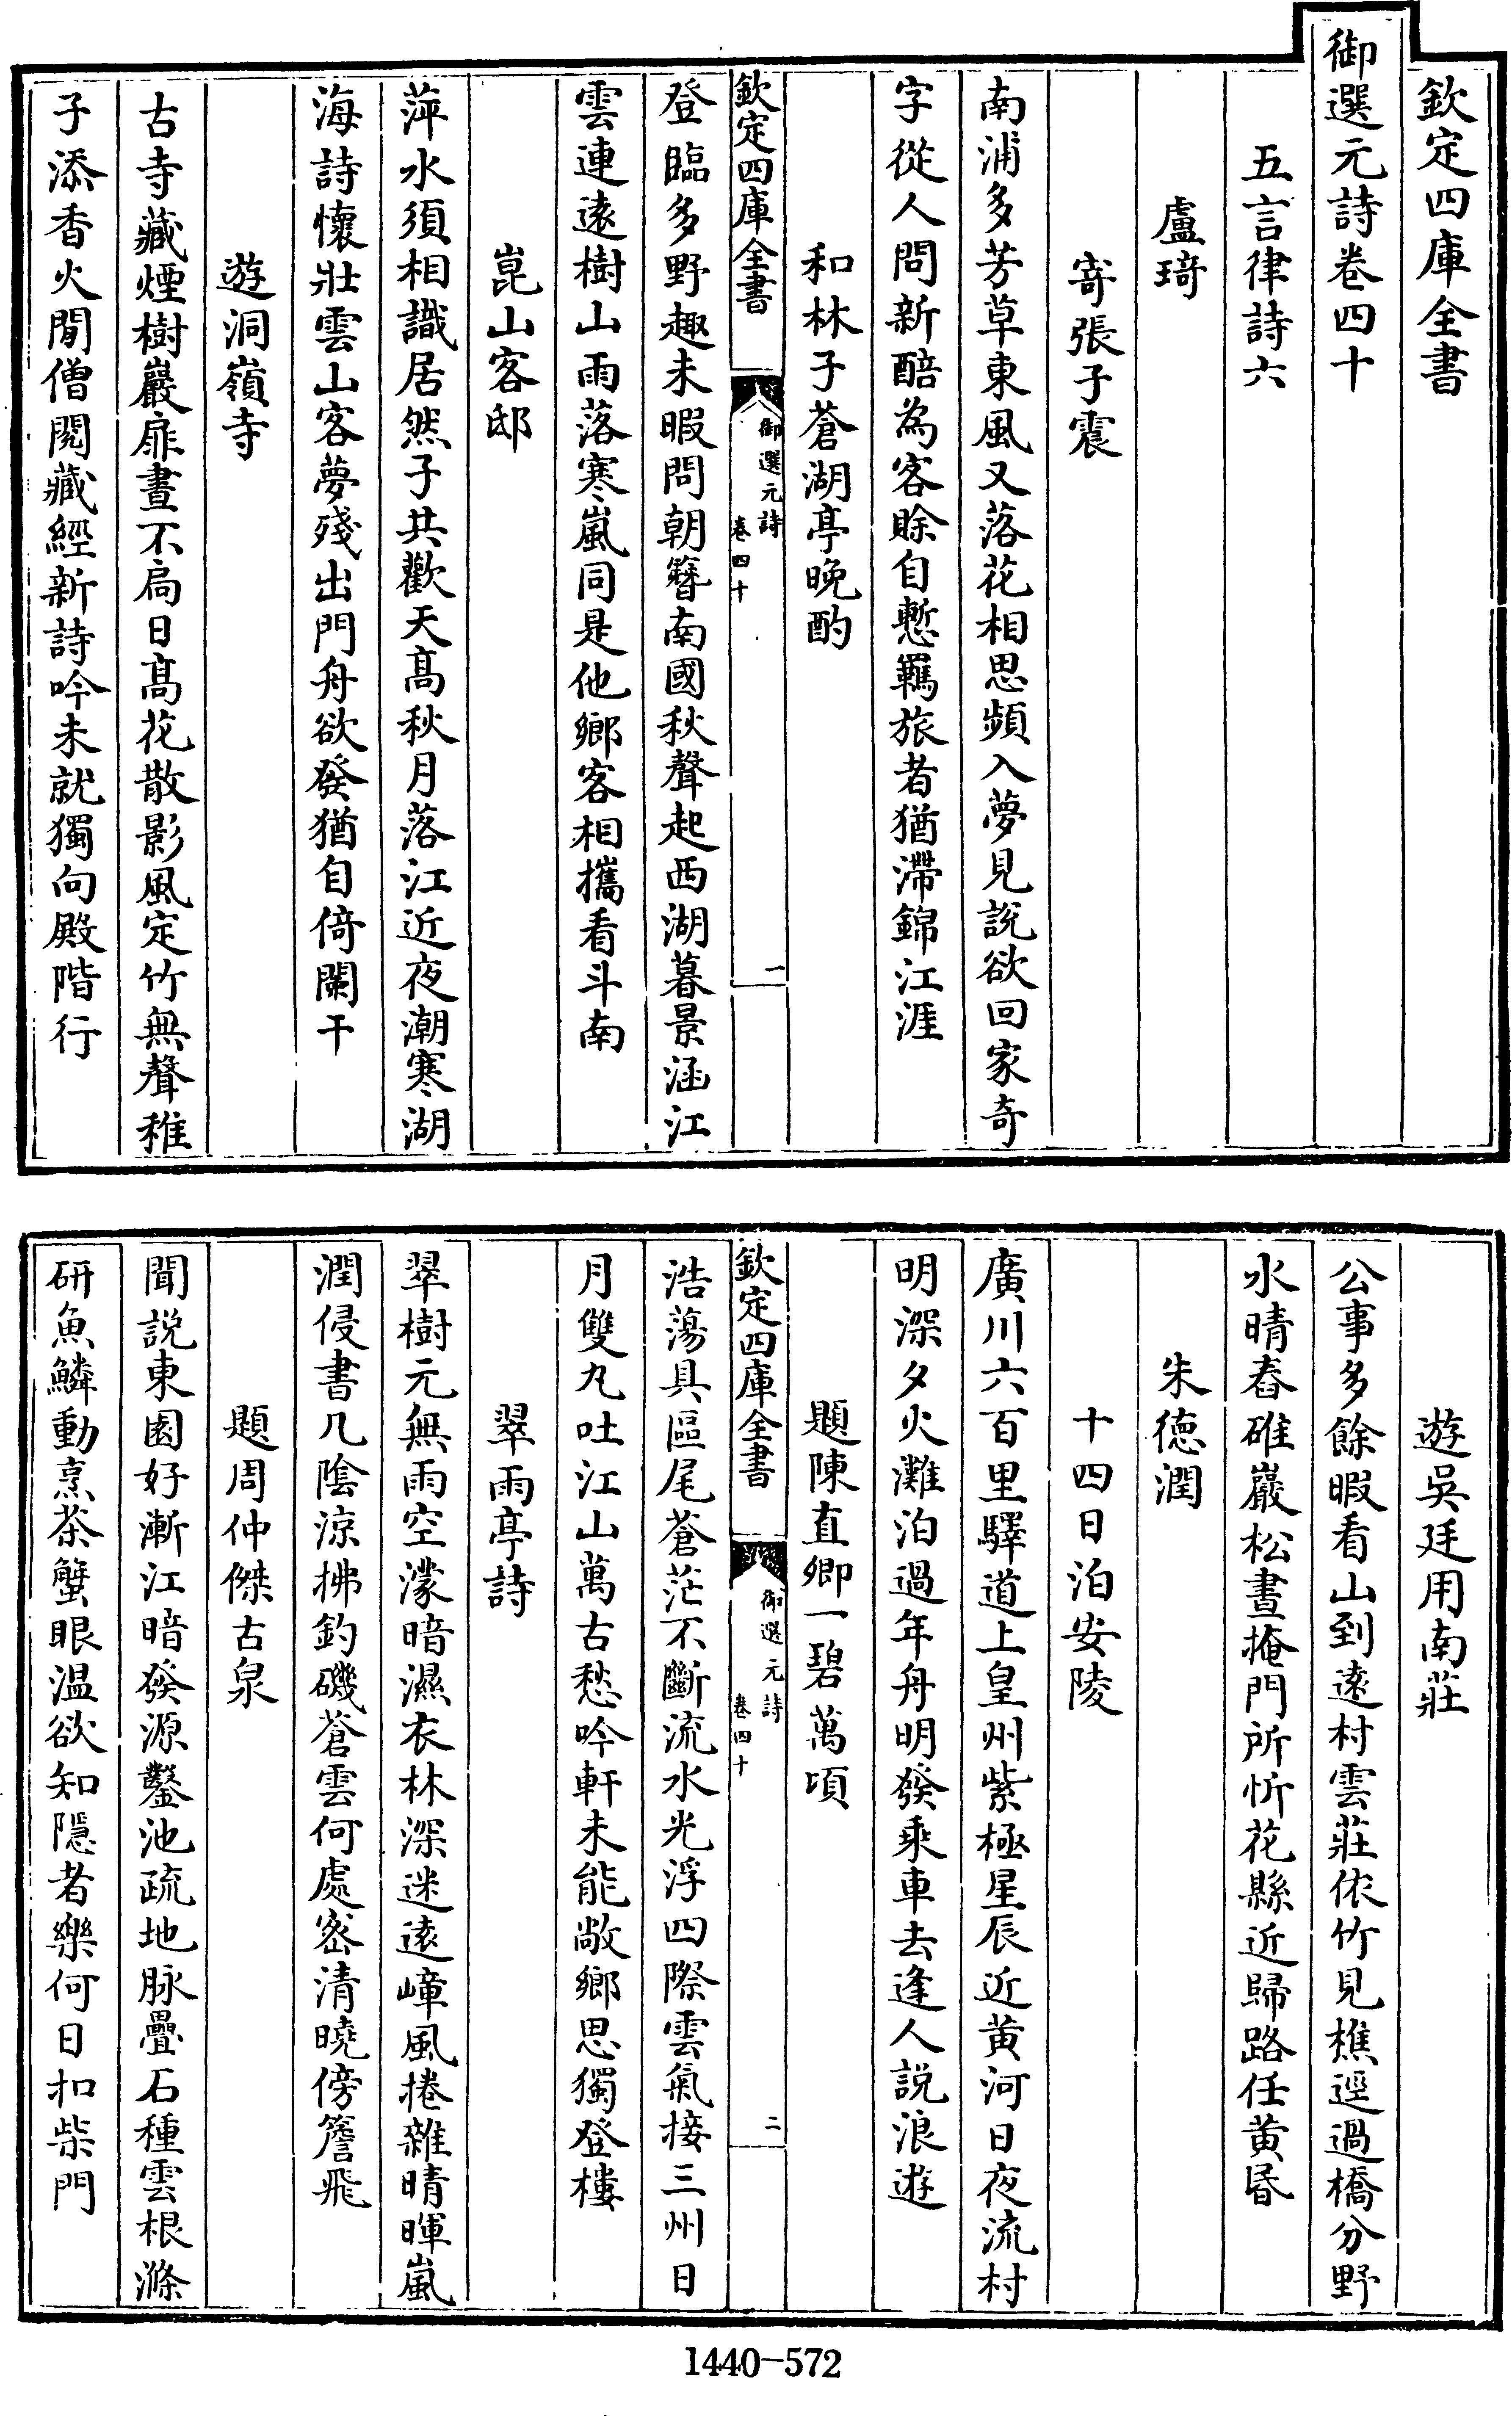 欽定四庫全書
御選元詩卷四十
五言律詩六
盧琦
寄張子震
南浦多芳草東風又落花相思頻入夢見說欲回家奇
字從人問新醅為客賒自慙羈旅者猶滯錦江涯
和林子蒼湖亭晚酌
欽定四庫全書
御選元詩
卷四十
一
登臨多野趣未暇問朝簪南國秋聲起西湖暮景涵江
雲連遠樹山雨落寒嵐同是他鄉客相攜看斗南
崑山客邸
萍水須相識居然子共歡天髙秋月落江近夜潮寒湖
海詩懷壯雲山客夢殘出門舟欲發猶自倚闌干
遊洞嶺寺
古寺藏煙樹巖扉晝不扃日髙花散影風定竹無聲稚
子添香火閒僧閱藏經新詩吟未就獨向殿階行
遊吳廷用南莊
公事多餘暇看山到遠村雲莊依竹見樵逕過橋分野
水晴舂碓巖松晝掩門所忻花縣近歸路任黄昏
朱德潤
十四日泊安陵
廣川六百里驛道上皇州紫極星辰近黄河日夜流村
明深夕火灘泊過年舟明發乘車去逢人說浪遊
題陳直卿一碧萬頃
欽定四庫全書
御選元詩
卷四十
二
浩蕩具區尾蒼茫不斷流水光浮四際雲氣接三州日
月雙丸吐江山萬古愁吟軒未能敞鄉思獨登樓
翠雨亭詩
翠樹元無雨空濛暗濕衣林深迷遠嶂風捲雜晴暉嵐
潤侵書几陰涼拂釣磯蒼雲何處密清曉傍簷飛
題周仲傑古泉
聞說東園好漸江暗發源鑿池疏地脉疊石種雲根滌
研魚鱗動烹茶蟹眼温欲知隱者樂何日扣柴門
1440-572